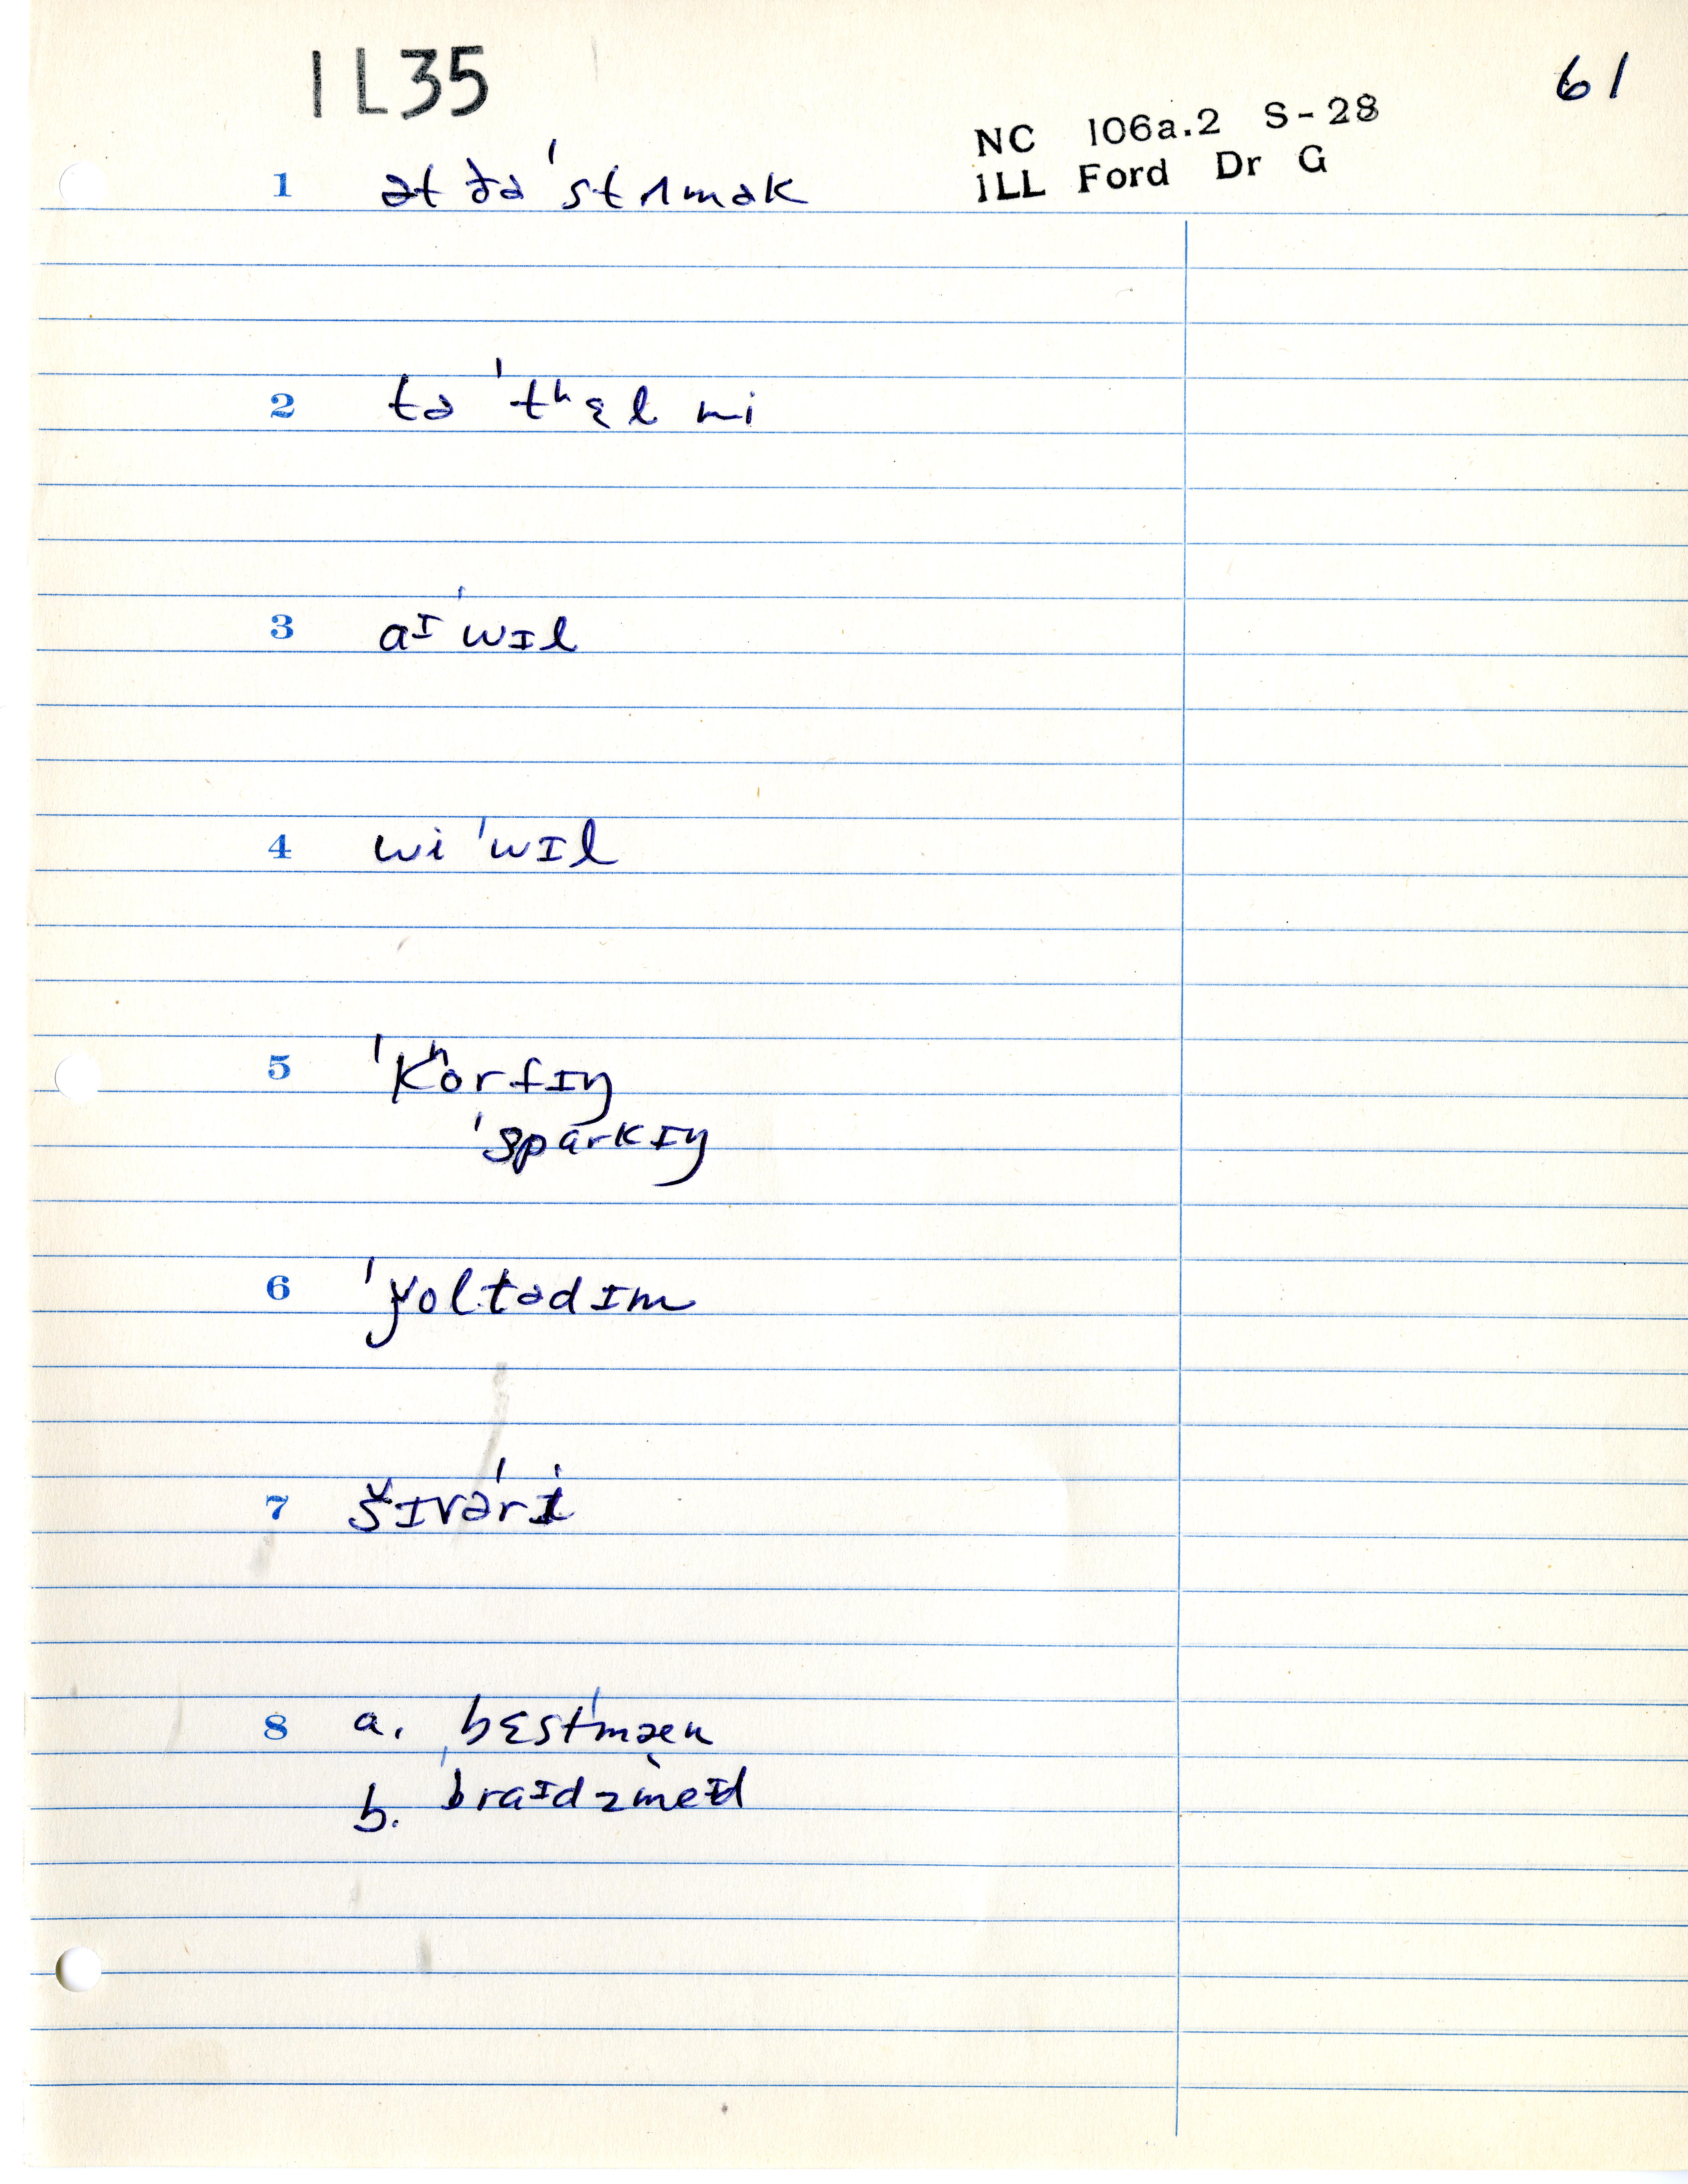 IL35
61
NC 106a.2 S-28
ILL Ford Dr G
1 ət ðə ˈstʌmək
2 tə ˈtʰɛl mi
3 aᴵ ˈwɪl
4 wi ˈwɪl
5 ˈkʰorfɪŋ
ˈsparkɪŋ
6 ˈǰɪltədɪm
7 šɪvəˈri
8 a. bɛstˈmæn
b. ˈbraɪdzmeɪd